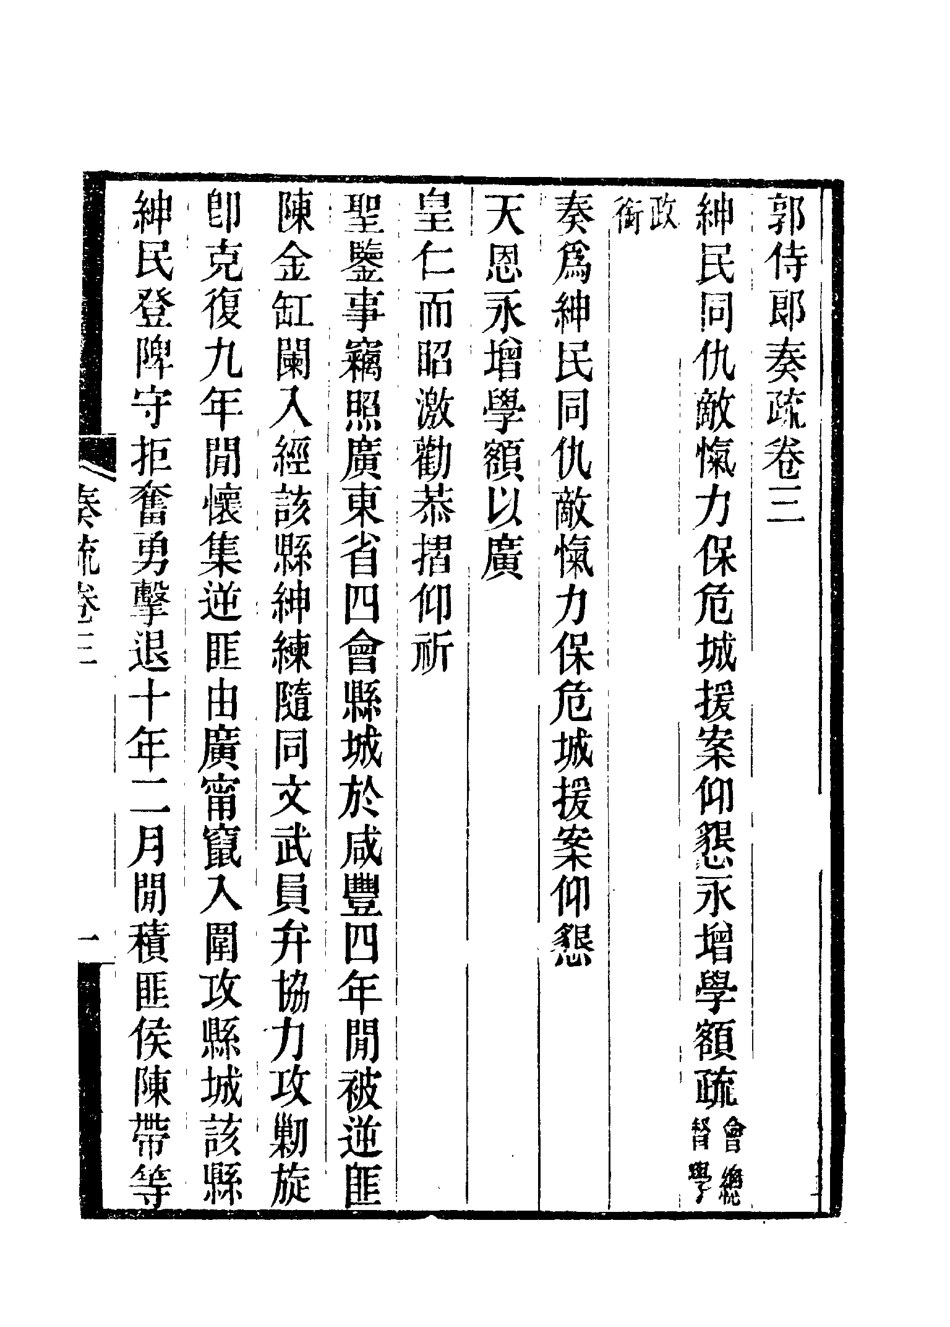 郭侍郎奏疏卷三
紳民同仇敵愾力保危城援案仰懇永增學額疏會總督學
政銜
奏爲紳民同仇敵愾力保危城援案仰懇
天恩永增學額以廣
皇仁而昭激勸恭摺仰祈
聖鑒事竊照廣東省四會縣城於咸豐四年閒被逆匪
陳金缸闌入經該縣紳練隨同文武員弁協力攻勦旋
卽克復九年閒懷集逆匪由廣甯竄入圍攻縣城該縣
紳民登陴守拒奮勇擊退十年二月閒積匪侯陳帶等
奏疏卷三
一